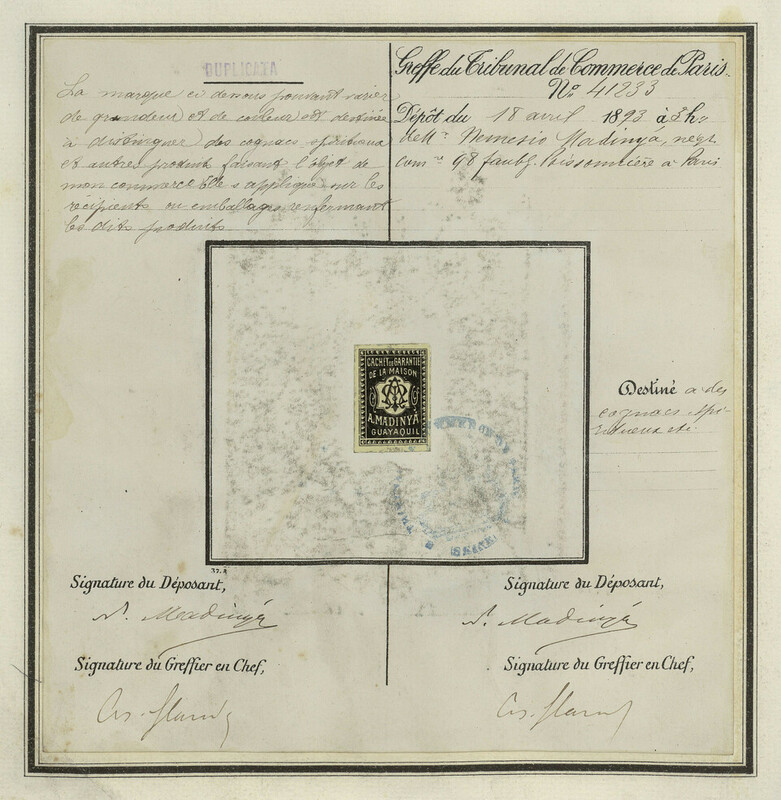 DUPLICATA
La marque ci dessus pouvant varier
de grandeur et de couleur est destinée
à distinguer des cognacs spiritueux
et autres produits faisant l'objet de
mon commerce Elle s'applique sur les
récipients ou emballages renfermant
les dits produits
Greffe du Tribunal de Commerce de Paris.
No 41233
Dépôt du 18 avril 1893 à 3h
de M. Nemesio Madinyá, négt
com re 98 faubg. Poissonnière à Paris
CACHET DE GARANTIE
DE LA MAISON
A. MADINYÁ
GUAYAQUIL
Destiné a des
cognacs spi-
ritueux etc.
SEINE
Signature du Déposant,
N. Madinyá
Signature du Greffier en Chef,
Signature du Déposant,
N. Madinyá
Signature du Greffier en Chef,